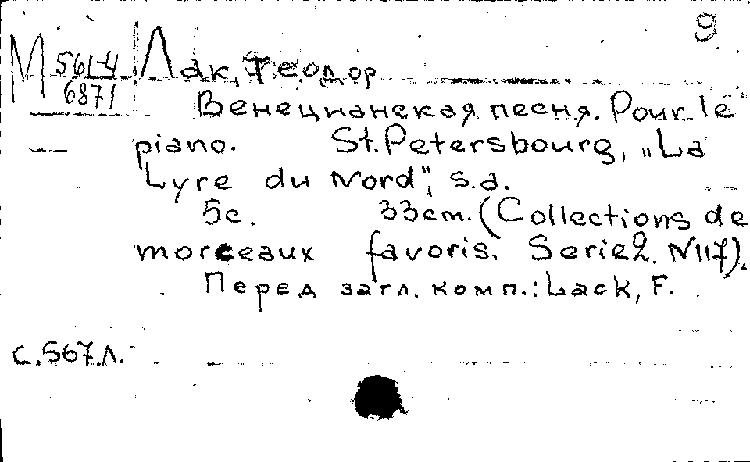 9
М 561-4/6871 Лак, Теодор
Венецианская песня. Pour le
piano. St. Petersbourg, „La
Lyre du Nord", s.a.
5с. 33см. (Collections de
morceaux favoris. Serie 2. N117).
Перед загл. комп.: Lack, F.
с.567.Л.